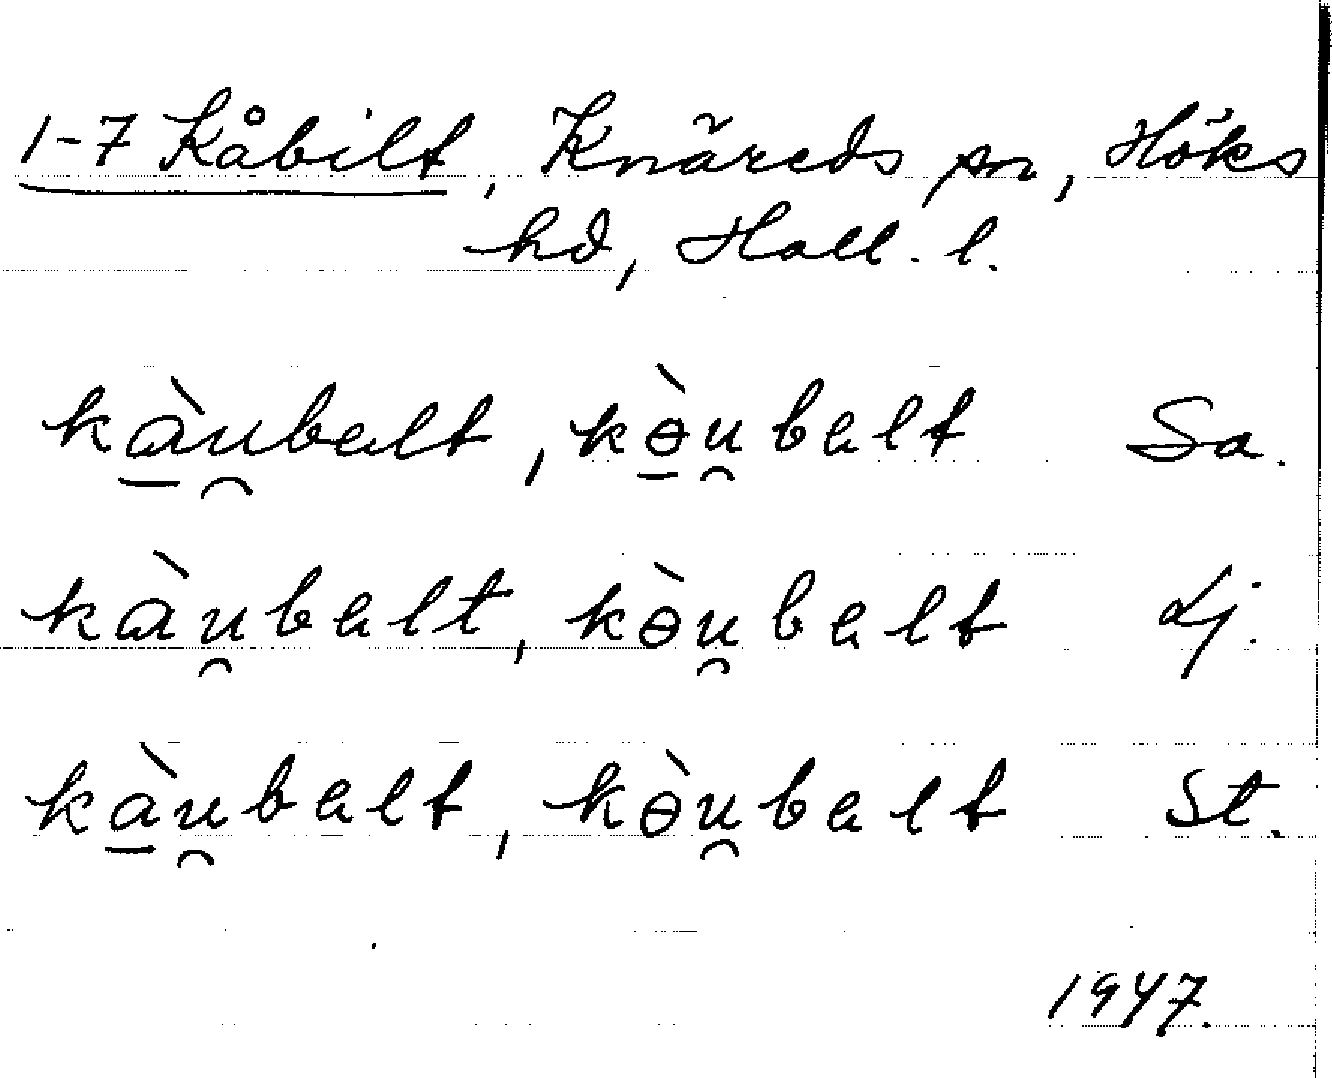 1-7 Kåbilt, Knäreds sn, Höks
hd, Hall. l.
kàu̯bəlt, kɵ̀u̯bəlt Sa.
kàu̯bəlt, kɵ̀u̯bəlt Lj.
kàu̯bəlt, kɵ̀u̯bəlt St.
1947.